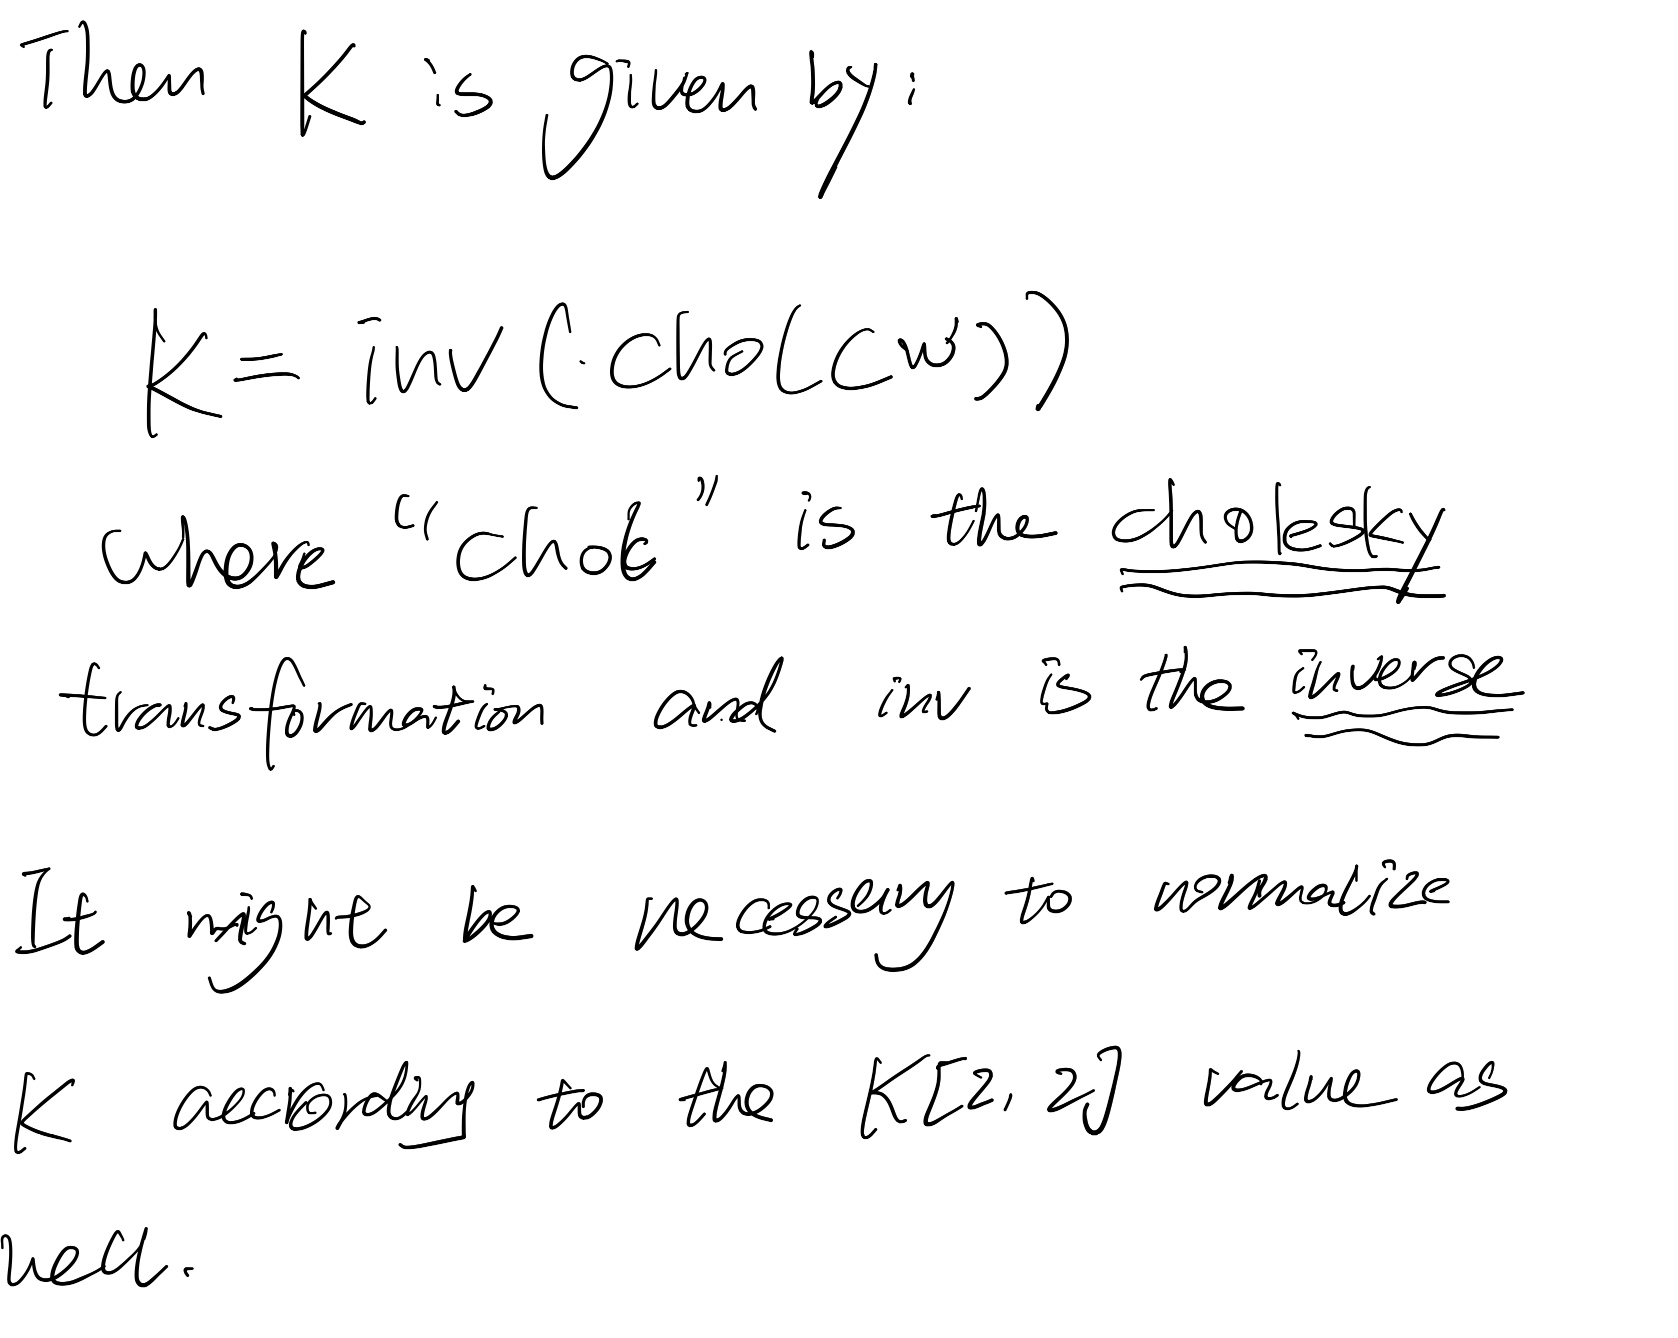 Then K is given by:
K = inv (chol(w))
where "chol" is the cholesky
transformation and inv is the inverse
It might be necessary to normalize
K according to the K[2,2] value as
well.